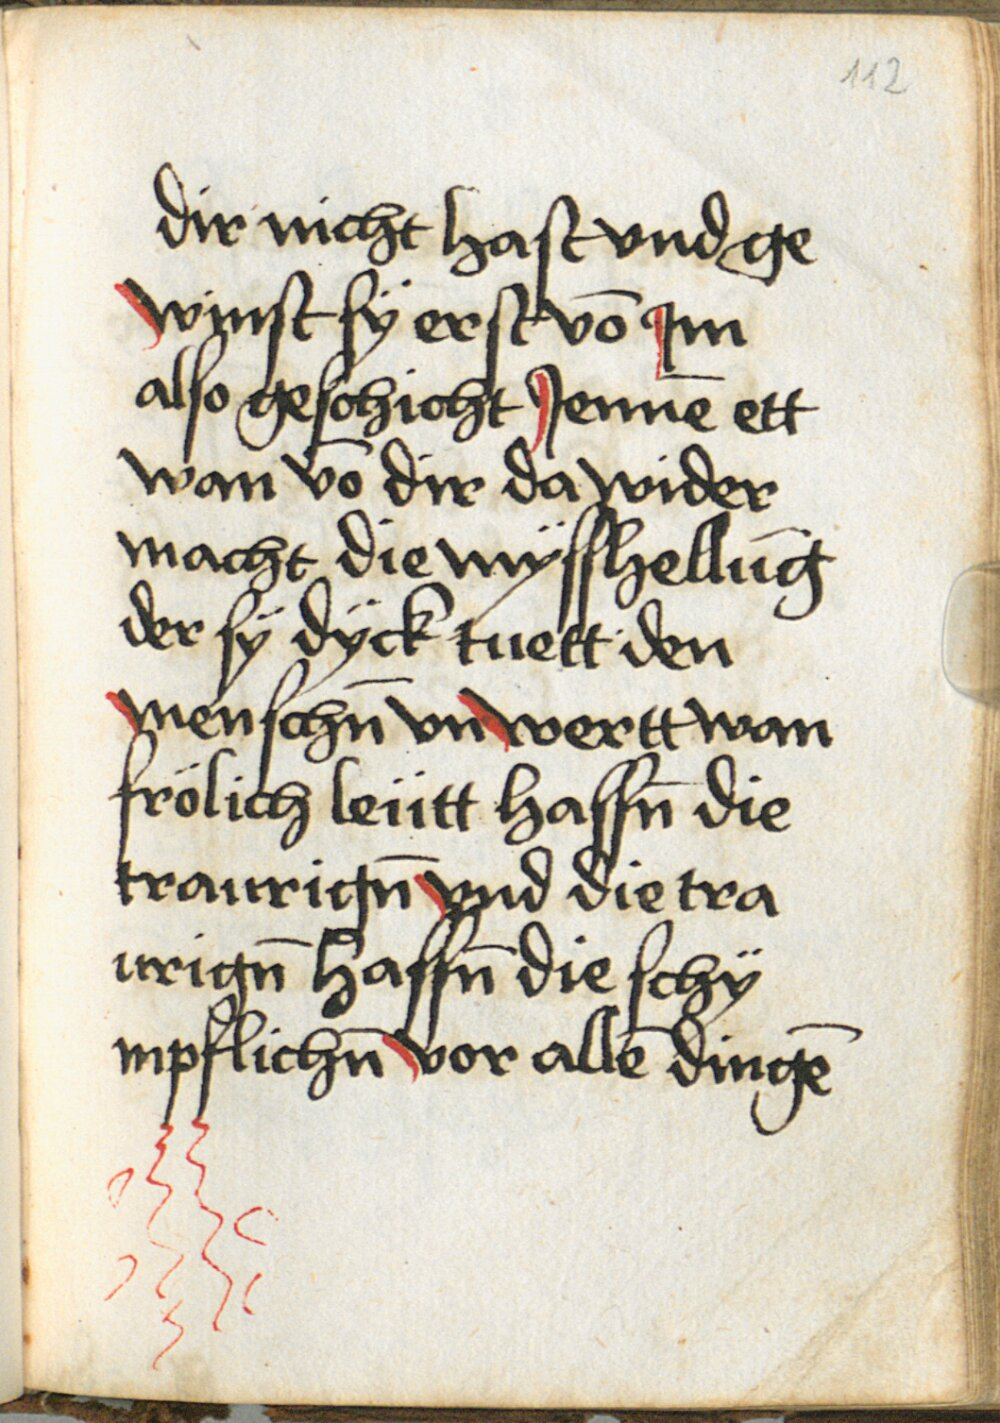 112
dir nicht hast vnd ge
winst sÿ erst vō Im
also geschicht Jennē ett
wan vō dir da wider
macht die mÿsshellūg
der sÿ dÿck tuett den
menschn̄ vn wertt wan
frölich leütt hassn̄ die
traurign̄ vnd die tra
urign̄ hassn̄ die schÿ
mpflichn̄ vor allē dingē